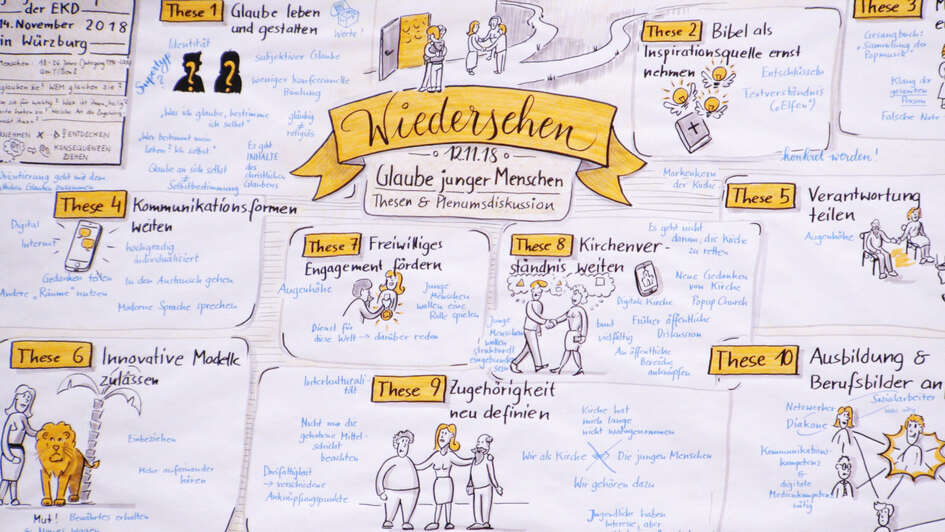 der EKD
14. November 2018
in Würzburg
These 1
Glaube leben
und gestalten
Werte!
Identität
Supertyp
?
subjektiver Glaube
weniger konfessionelle
Bindung
"Was ich glaube, bestimme
ich selbst"
gläubig
≠
religiös
"Was bestimmt mein
Leben? Ich selbst."
Es gibt
INHALTE
des
christlichen
Glaubens
Glaube an sich selbst
≠
Selbstbestimmung
ENTDECKEN
KONSEQUENZEN
ZIEHEN
Wiedersehen
12.11.18
Glaube junger Menschen
Thesen & Plenumsdiskussion
These 2
Bibel als
Inspirationsquelle ernst
nehmen
Entschlüsseln
Textverständnis
("Elfen")
konkret werden!
Markenkern
der Kirche
These 3
Gesangbuch:
"Sammlung der
Popmusik"
Klang der
gesamten
Person
Falsche Note
These 4
Kommunikationsformen
weiten
Digital
Internet
hochgradig
individualisiert
Gedanken teilen
Andere "Räume" nutzen
In den Austausch gehen
Moderne Sprache sprechen
These 5
Verantwortung
teilen
Augenhöhe
These 6
Innovative Modelle
zulassen
Einbeziehen
Mehr aufeinander
hören
Mut!
Bewährtes erhalten
& Neues wagen
These 7
Freiwilliges
Engagement fördern
Augenhöhe
Junge
Menschen
wollen eine
Rolle spielen
Dienst für
diese Welt → darüber reden
These 8
Kirchenver-
ständnis weiten
Es geht nicht
darum, die Kirche
zu retten
Neue Gedanken
von Kirche
Digitale Kirche
Popup Church
Junge
Menschen
wollen
strukturell
eingebunden
sein
bunt
vielfältig
Früher öffentliche
Diskussion
An öffentliche
Bereiche
anknüpfen
These 9
Zugehörigkeit
neu definien
Interkulturali-
tät
Nicht nur die
gehobene Mittel-
schicht
beachten
Vielfältigkeit
→ verschiedene
Anknüpfungspunkte
Kirche hat
mich lange
nicht wahrgenommen
Wir als Kirche
Die jungen Menschen
Wir gehören dazu
Jugendliche haben
Interesse aber
These 10
Ausbildung &
Berufsbilder an
Netzwerker
Sozialarbeiter
Diakone
Kommunikations-
kompetenz
&
digitale
Medienkompetenz
nötig